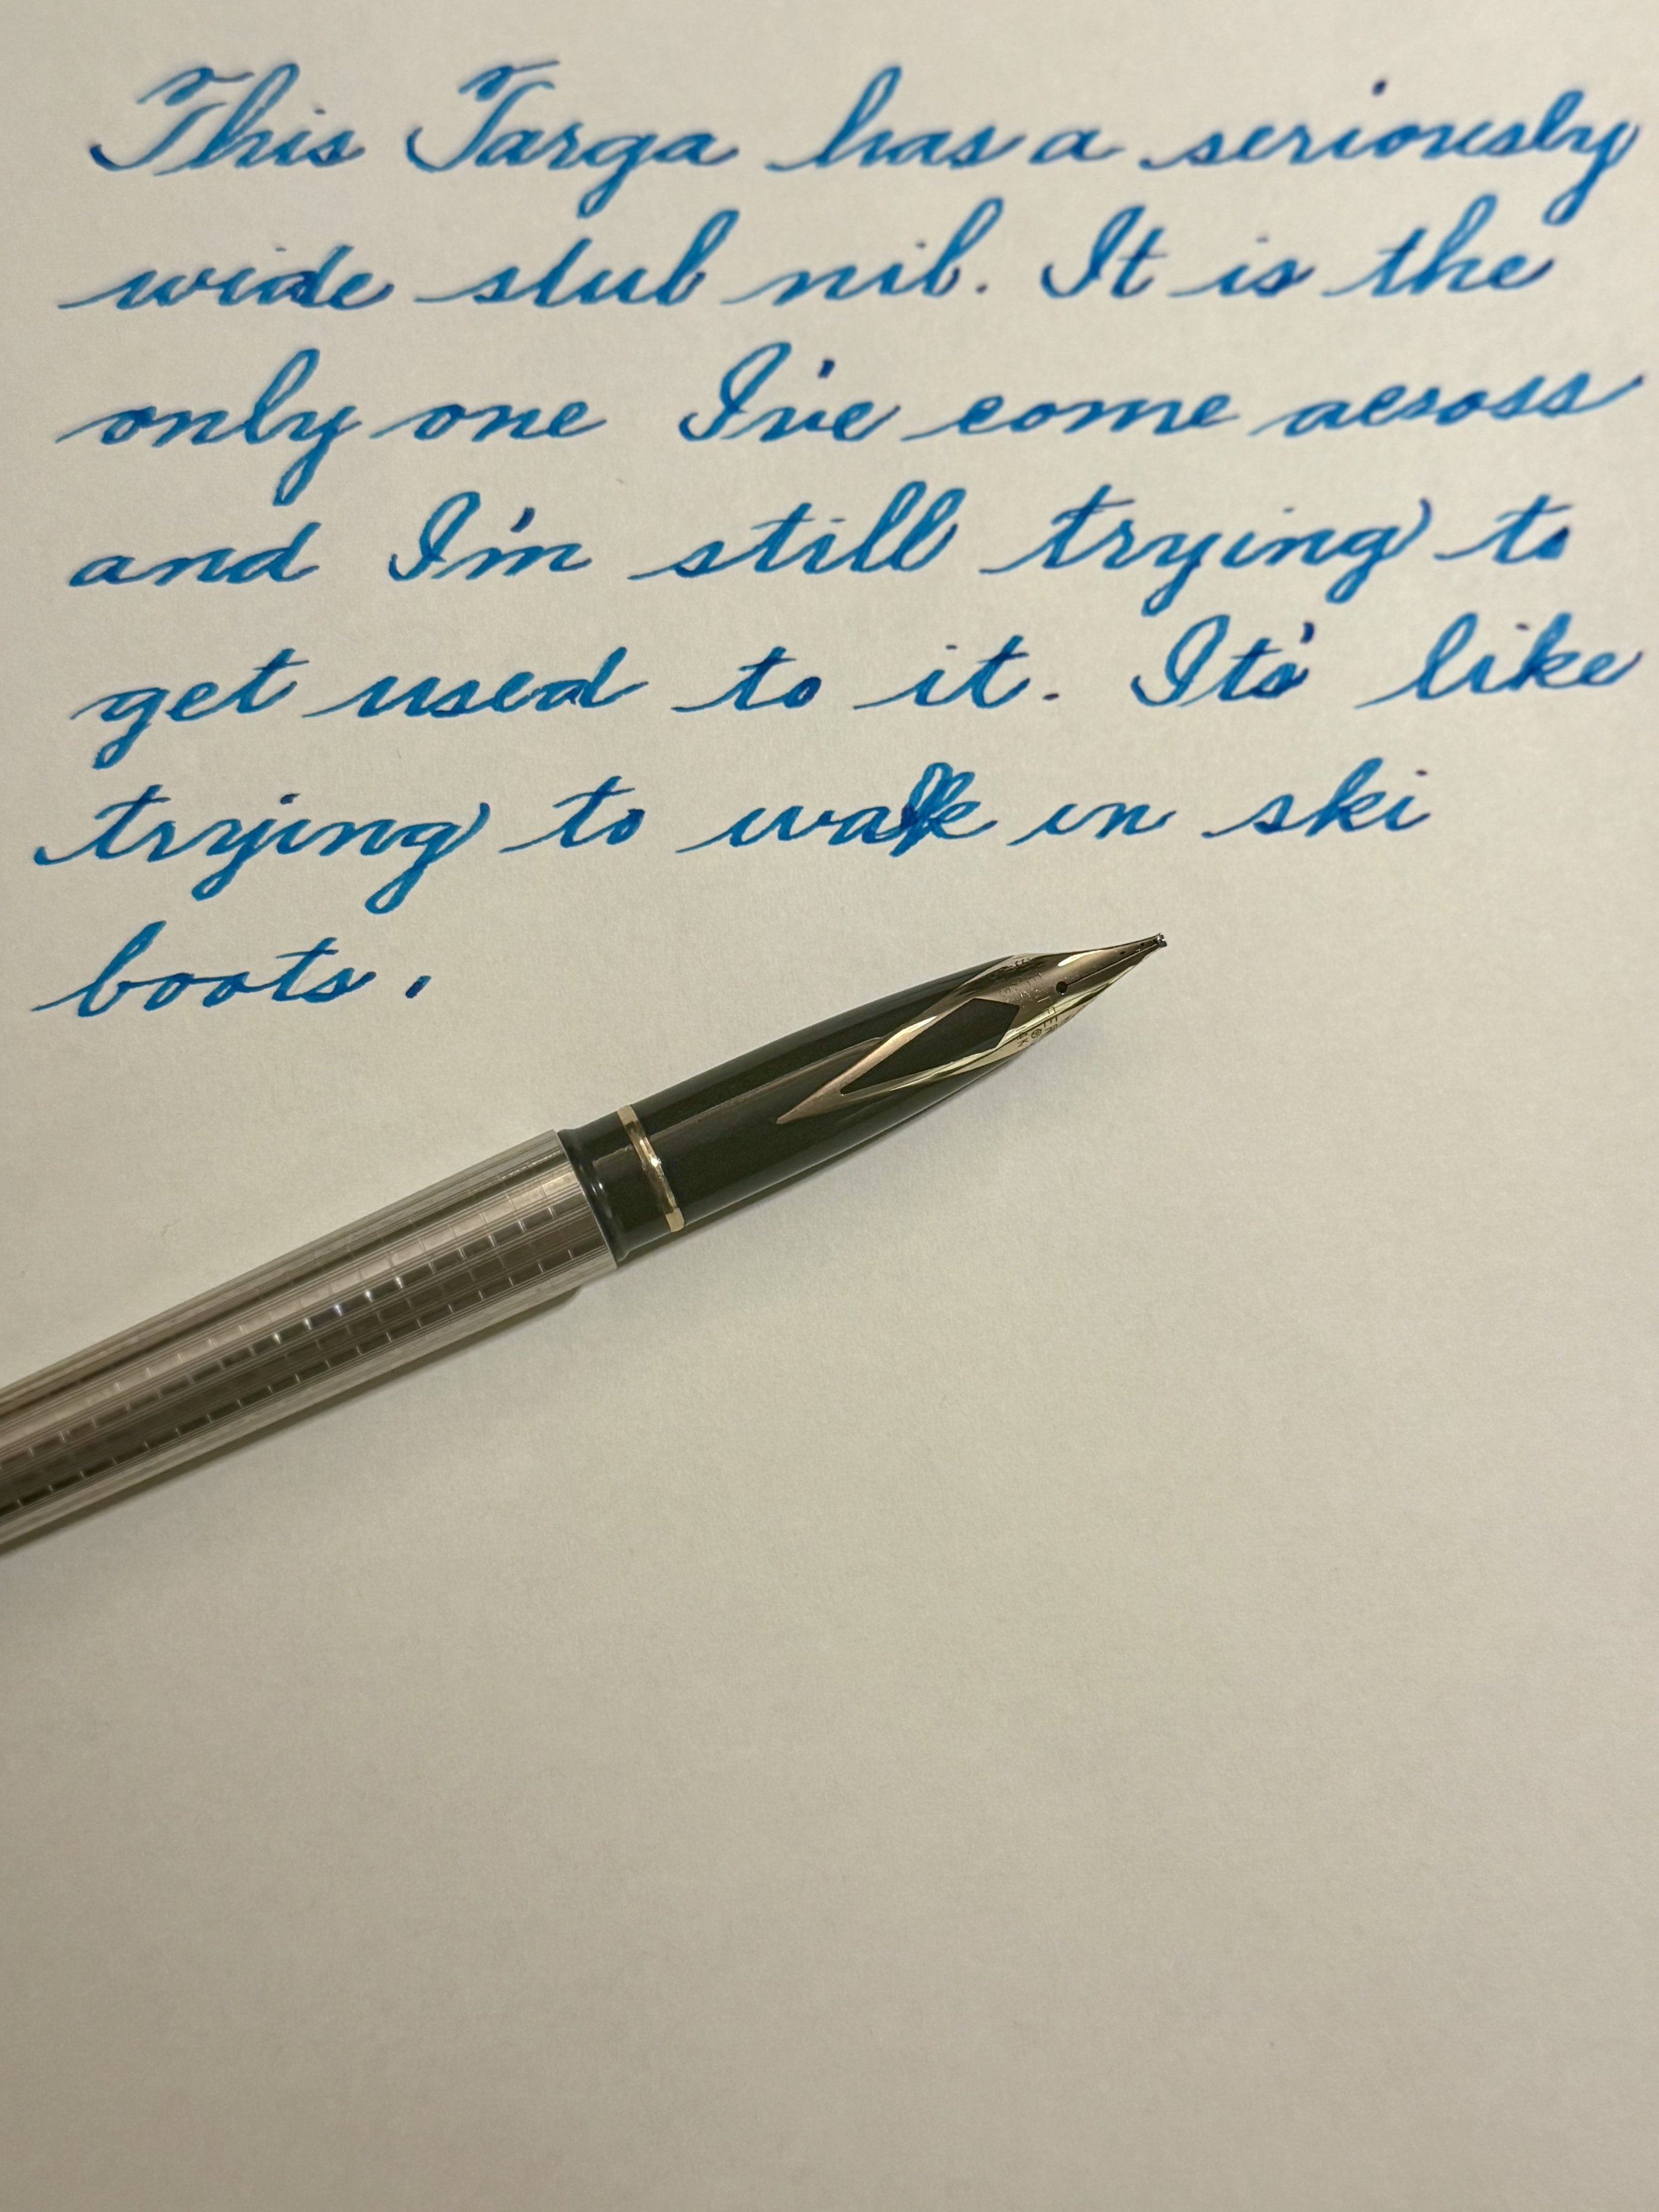 This Targa has a seriously
wide stub nib. It is the
only one I've come across
and I'm still trying to
get used to it. It's like
trying to walk in ski
boots.